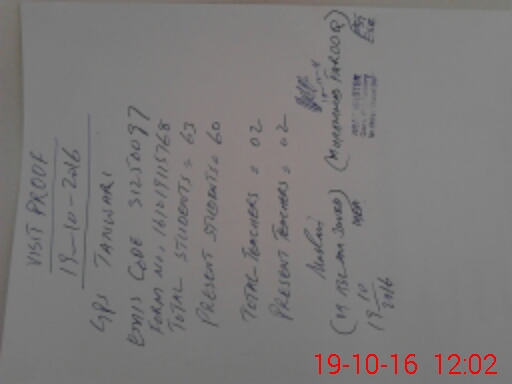 VISIT PROOF
19-10-2016
GPS TANWARI
EMIS CODE 31250097
FORM NO. 161019115768
TOTAL STUDENTS = 63
PRESENT STUDENTS = 60
TOTAL TEACHERS = 02
PRESENT TEACHERS = 02
(MUHAMMAD FAROOQ)
MEA
19-10-2016
19-10-16 12:02